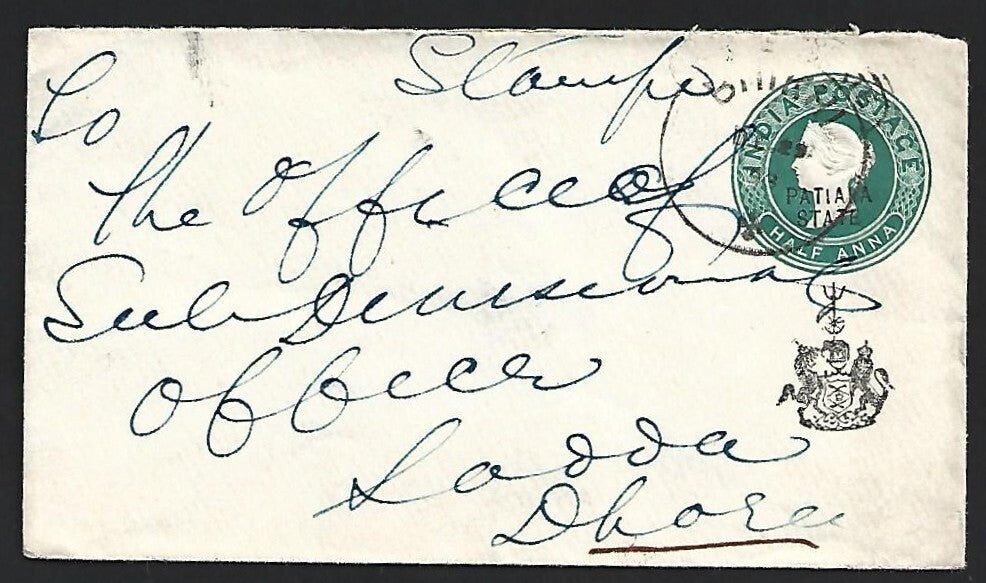 Stamps
To
The Office of
Sub Divisional
Officer
Ladda
Dhori
INDIA POSTAGE
PATIALA
STATE
HALF ANNA